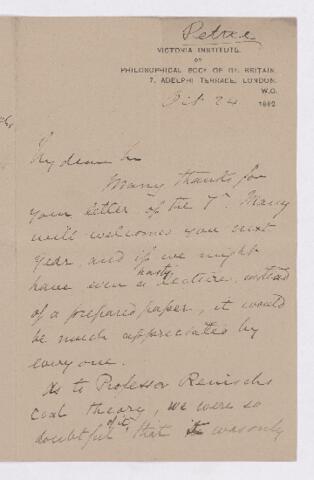 Petrie
VICTORIA INSTITUTE,
OR
PHILOSOPHICAL SOCY OF GT. BRITAIN,
7, ADELPHI TERRACE, LONDON,
W.C.
Oct 24 1892
My dear Sir
Many thanks for
your letter of the 7th. Many
will welcome you next
year, and if we might
have even a hasty lecture, instead
of a prepared paper, it would
be much appreciated by
everyone.
As to Professor Reinisch's
theory, we were so
doubtful of it, that it was only